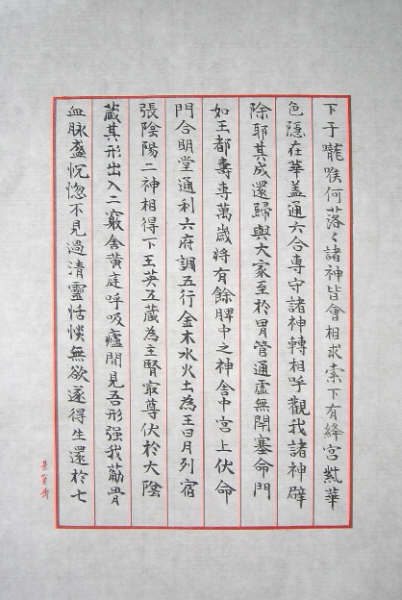 下于嚨喉何落々諸神皆會相求索下有絳宮紫華
色隱在華蓋通六合專守諸神轉相呼觀我諸神辟
除耶其成還歸與大家至於胃管通虛無閉塞命門
如玉都壽專萬歲將有餘脾中之神舍中宮上伏命
門合明堂通利六府調五行金木水火土為王日月列宿
張陰陽二神相得下玉英五藏為主腎最尊伏於大陰
藏其形出入二竅舍黃庭呼吸廬間見吾形强我筋骨
血脉盛恍惚不見過清靈恬惔無欲遂得生還於七